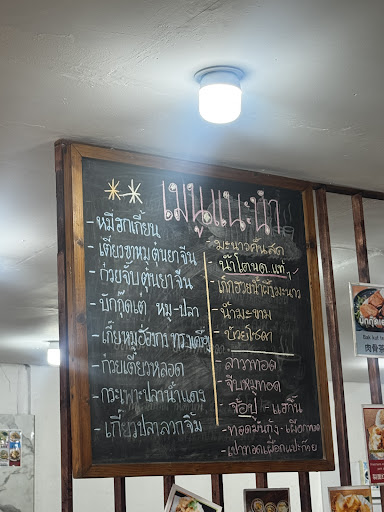 เมนูแนะนำ
- หมี่ฮกเกี้ยน
- เตี๋ยวขาหมูตุ๋นยาจีน
- ก๋วยจั๊บตุ๋นยาจีน
- บักกุ๊ดเต่ หมู-ปลา
- เกี๊ยวหมูฮ่องกง
- ก๋วยเตี๋ยวหลอด
- กระเพาะปลาน้ำแดง
- เกี๊ยวปลาลวกจิ้ม
มะนาวคั้นสด
น้ำโตนด แท้
- น้ำมะขาม
- บ๊วยโซดา
- สาวาทอด
- จีบหมูทอด
- จ้อปู - แฮกึ๊น
- ทอดมันกุ้ง - เผือกทอด
- เปาะทอด
肉骨茶